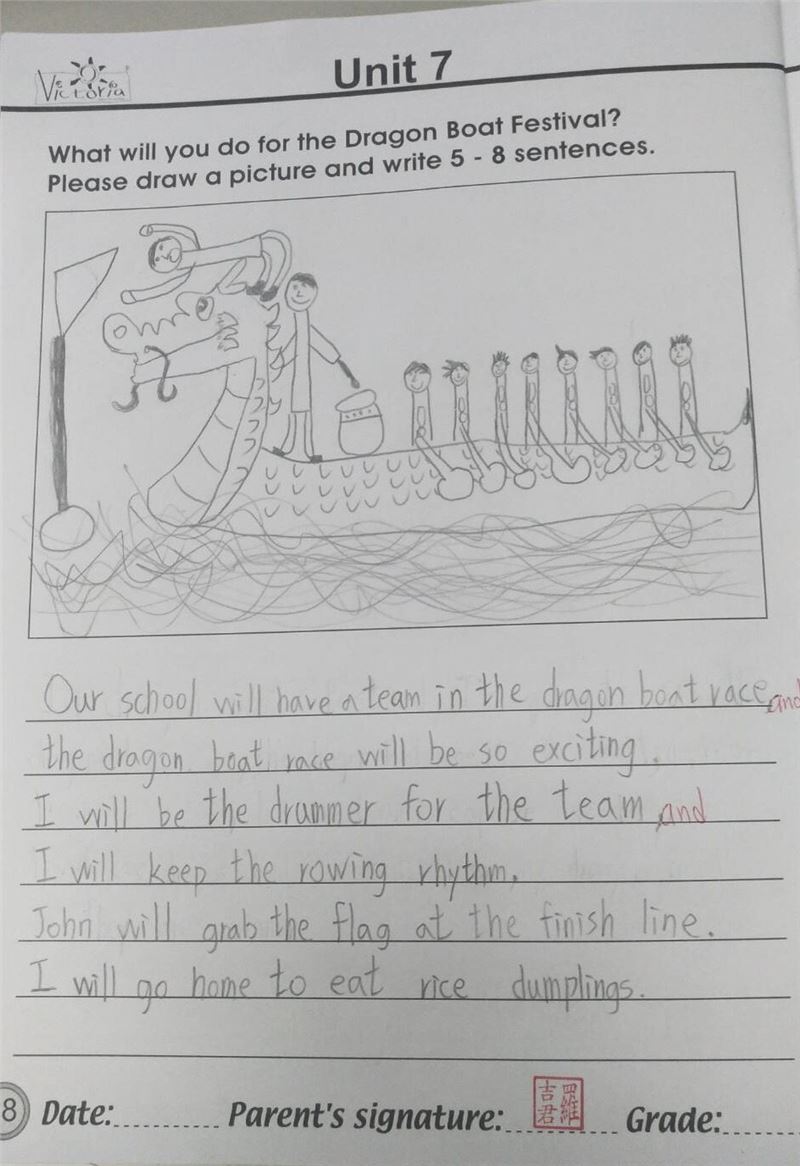 Victoria
Unit 7
What will you do for the Dragon Boat Festival?
Please draw a picture and write 5 - 8 sentences.
Our school will have a team in the dragon boat race, and
the dragon boat race will be so exciting.
I will be the drummer for the team, and
I will keep the rowing rhythm.
John will grab the flag at the finish line.
I will go home to eat rice dumplings.
8 Date: Parent's signature: 羅維吉君 Grade: